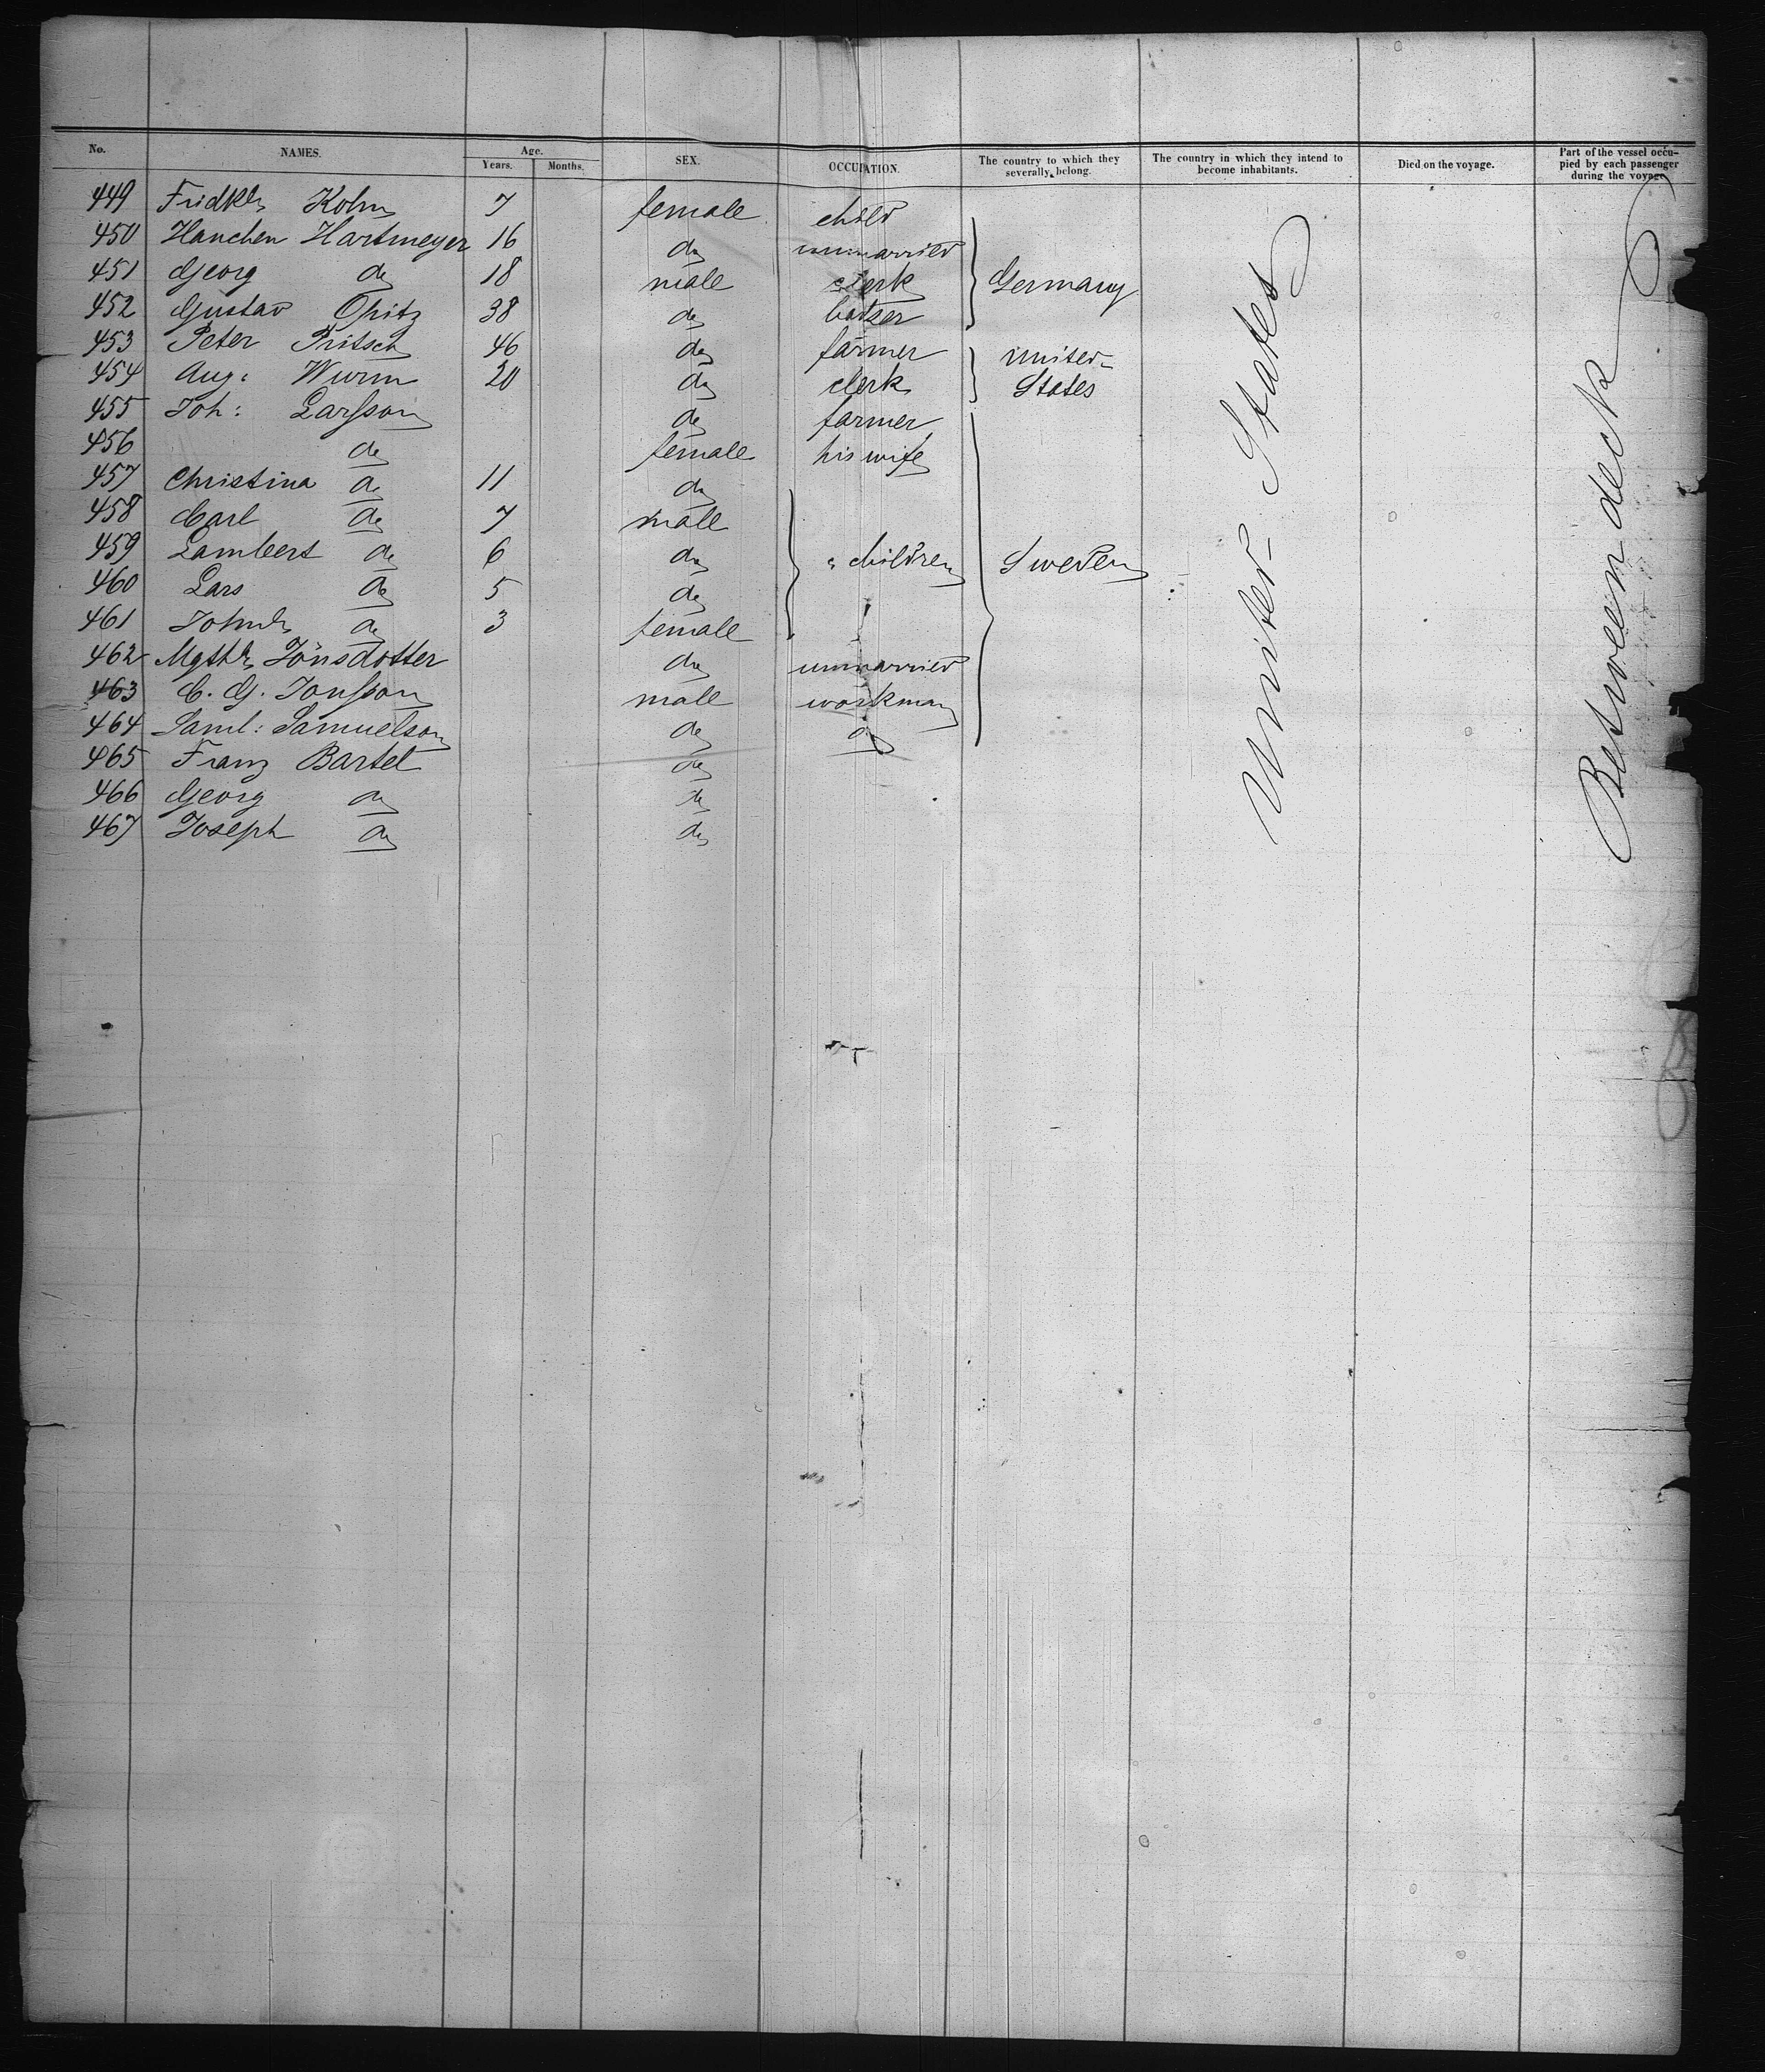 No. NAMES. Age. Years. Months. SEX. OCCUPATION. The country to which they severally belong. The country in which they intend to become inhabitants. Died on the voyage. Part of the vessel occupied by each passenger during the voyage
449 Kohn 7 female child
450 Hanchen Hartmeyer 16 do unmarried
451 Georg do 18 male clerk Germany
452 Gustav Opitz 38 do
453 Peter Pritsch 46 do farmer United-
454 Aug: Wurm 20 do clerk States
455 Joh: Larsson do farmer
456 do female his wife
457 Christina do 11 do
458 Carl do 7 male
459 Lambert do 6 do children Sweden
460 Lars do 5 do
461 do 3 female
462 Jönsdotter do unmarried
463 C. G. Jonsson male workman
464 Saml: Samuelson do do
465 Franz Bartel do
466 Georg do do
467 Joseph do do
United-States
Between deck